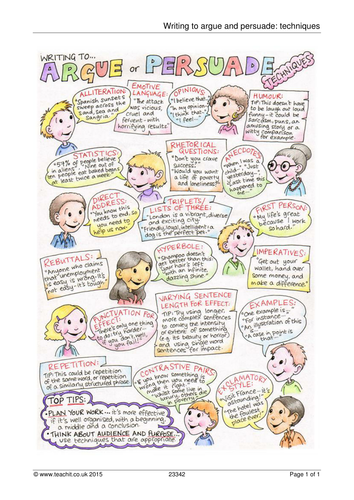 Writing to argue and persuade: techniques
WRITING TO...
ARGUE or PERSUADE
TECHNIQUES
ALLITERATION:
"Spanish sunsets
sweep across the
sand, sea and
Sangria.
EMOTIVE
LANGUAGE:
"The attack
was vicious,
cruel and
fervent - with
horrifying results."
OPINIONS:
"I believe that..."
"In my opinion..."
"I think that..."
"I feel..."
HUMOUR:
TIP: This doesn't have
to be laugh out loud
funny - it could be
sarcasm, puns, an
amusing story or a
witty comparison
for example.
STATISTICS:
"59% of people believe
in aliens." "Nine out of
ten people eat baked beans
at least twice a week."
RHETORICAL
QUESTIONS:
"Don't you crave
success?"
"Would you want
a life of poverty
and loneliness?"
ANECDOTE:
"When I was a
child..." "Just
yesterday..."
"Last time this
happened to
me..."
DIRECT
ADDRESS:
"You know this
needs to end, so
you need to
help us now."
TRIPLETS/
LISTS OF THREE:
"London is a vibrant, diverse
and exciting city."
"Friendly, loyal, intelligent: a
dog is the perfect pet."
FIRST PERSON:
"My life's great
because I work
so hard."
REBUTTALS:
"Anyone who claims
that unemployment
is easy is wrong: it's
not easy - it's tough."
HYPERBOLE:
"Shampoo doesn't
get better than this:
your hair's left
with an infinite,
dazzling shine."
IMPERATIVES:
"Get out your
wallet, hand over
some money, and
make a difference."
PUNCTUATION FOR
EFFECT:
"There's only one thing
to do: try harder -
and you don't want
it you fail!"
VARYING SENTENCE
LENGTH FOR EFFECT:
TIP: Try using longer,
more complex sentences
to convey the intensity
or extent of something
(e.g. its beauty or horror)
and using single word
sentences for impact.
EXAMPLES:
"One example is..."
"For instance..."
"An illustration of this
is..."
"A case in point is
that..."
REPETITION:
TIP: This could be repetition
of the same word, or repetition
of a similarly structured phrase.
CONTRASTIVE PAIRS:
"If you know something's
wrong then you need to
make it right."
"Whilst some live in
plenty."
EXCLAMATORY
STYLE:
"Visit France - it's
astounding!"
"The hotel was
the foulest
place ever!"
TOP TIPS:
• PLAN YOUR WORK... it's more effective
if it's well organised, with a beginning,
a middle and a conclusion.
• THINK ABOUT AUDIENCE AND PURPOSE...
use techniques that are appropriate.
© www.teachit.co.uk 2015
23342
Page 1 of 1